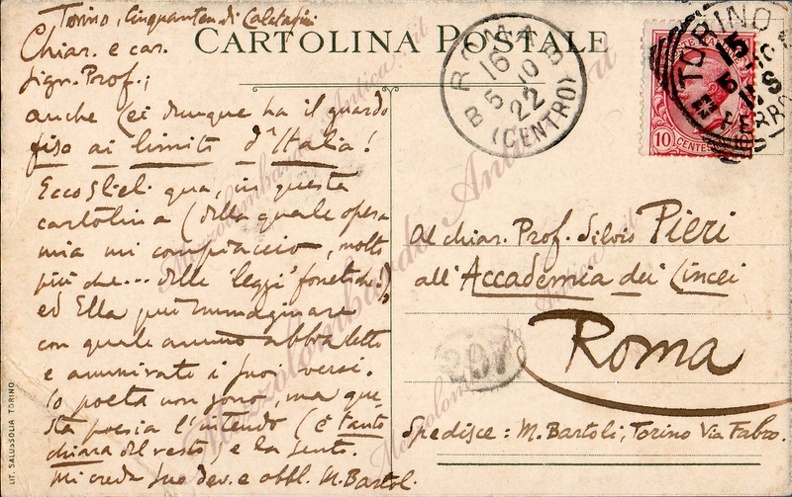 Torino, Cinquanten. di Calatafimi
Chiar. e car.
Sign. Prof.,
anche Lei dunque ha il guardo
fiso ai limiti d'Italia!
Eccoglieli qua, in questa
cartolina (della quale opera
mia mi compiaccio, molto
più che... delle 'leggi' fonetiche!)
ed Ella può immaginare
con quale animo abbia letto
e ammirato i suoi versi.
Io poeta non sono, ma que
sta poesia l'intendo (è tanto
chiara del resto) e la sento.
Mi creda suo dev. e obbl. M. Bartol.
CARTOLINA POSTALE
ROMA
16
5 10
22
(CENTRO)
TORINO
FERRO
10 CENTES
Al chiar. Prof. Silvio Pieri
all'Accademia dei Lincei
Roma
207
Spedisce: M. Bartoli, Torino Via Fabro.
LIT. SALUSSOLIA TORINO
Mazzolombardo Antica.it